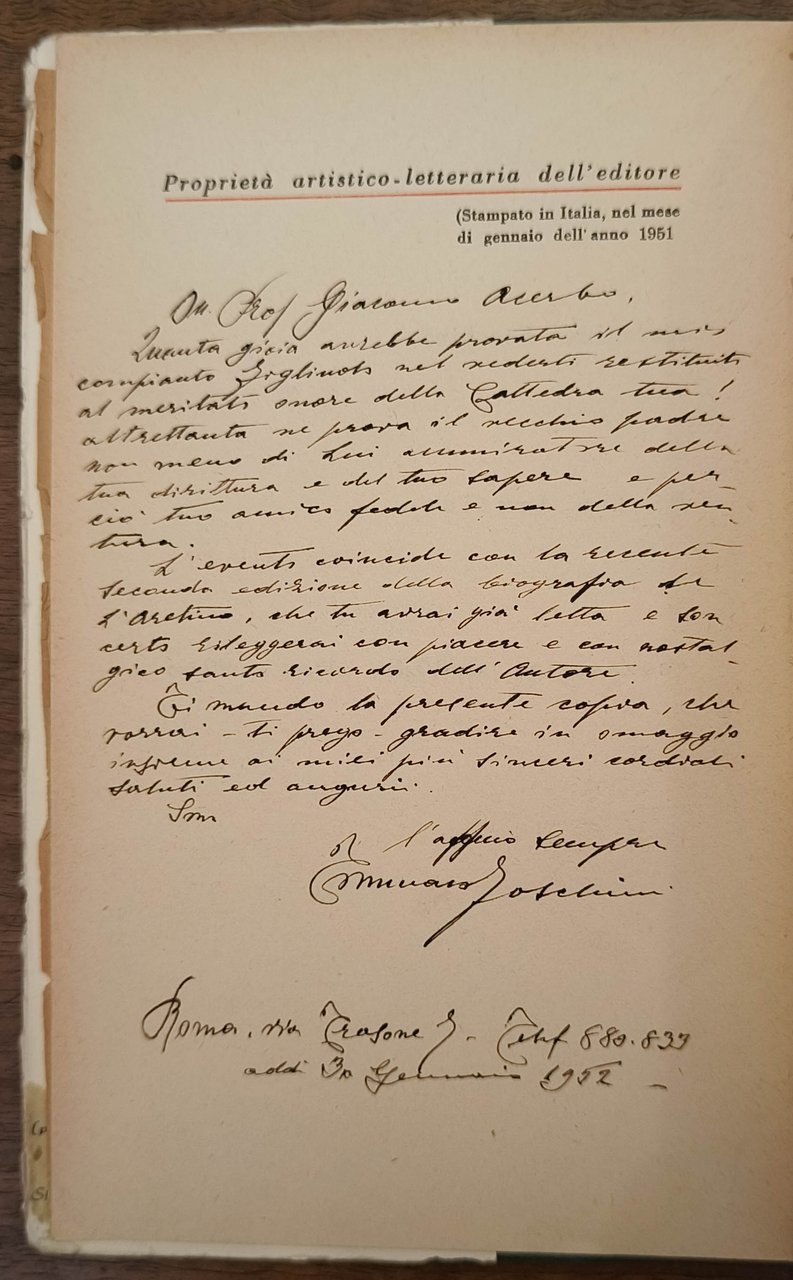 Proprietà artistico-letteraria dell'editore
(Stampato in Italia, nel mese
di gennaio dell'anno 1951
On. Prof Giacomo Acerbo,
Quanta gioia avrebbe provata il mio
compianto nel vederti restituito
al meritato onore della Cattedra tua!
altrettanta ne prova il vecchio padre
non meno di Lui ammiratore della
tua dirittura e del tuo sapere e per-
ciò tuo amico fedele e non della ven-
tura.
L'evento coincide con la recente
seconda edizione della biografia de
L'Aretino, che tu avrai già letta e son
certo rileggerai con piacere e con nostal-
gico santo ricordo dell'Autore.
Ti mando la presente copia, che
vorrai - ti prego - gradire in omaggio
insieme ai miei più sinceri cordiali
saluti ed augurii.
l'affmo sempre
Foschini
Roma, via Trasone - Telef 880.839
addì 30 Gennaio 1952